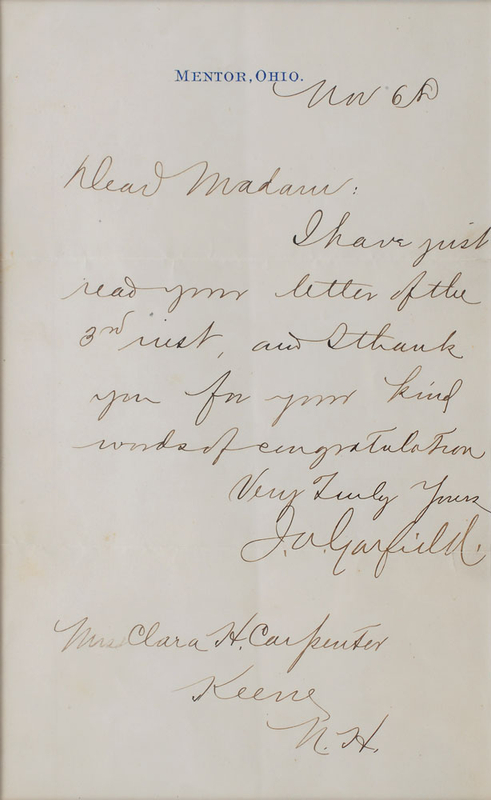 MENTOR, OHIO.
Nov 6th
Dear Madam:
I have just
read your letter of the
3rd inst, and I thank
you for your kind
words of congratulation
Very Truly Yours
J. A. Garfield.
Mrs Clara H. Carpenter
Keene
N. H.